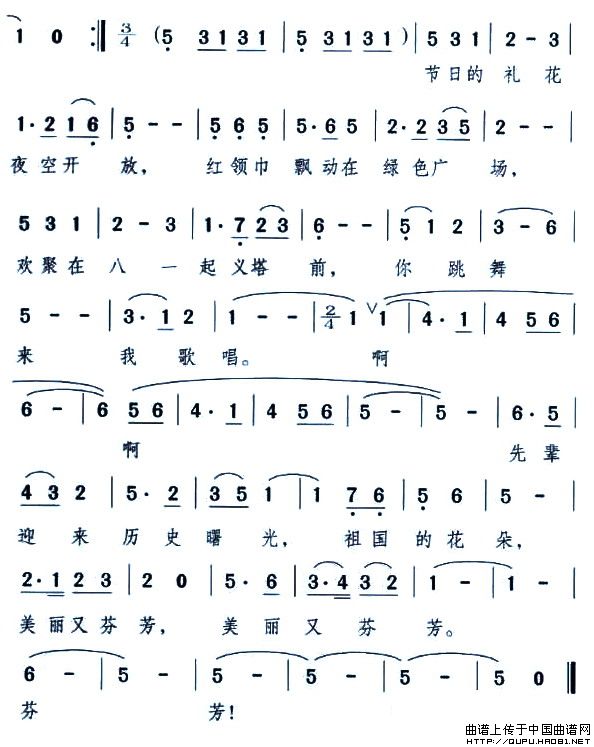 1 0 :‖ 3/4 ( 5 3131 | 5 3131 ) | 5 3 1 | 2 - 3 |
节日的 礼 花
1· 2 1 6 | 5 - - | 5 6 5 | 5· 6 5 | 2· 2 3 5 | 2 - - |
夜空开 放, 红领巾 飘动在 绿色广 场,
5 3 1 | 2 - 3 | 1· 7 2 3 | 6 - - | 5 1 2 | 3 - 6 |
欢聚在 八 一 起义塔 前, 你 跳舞
5 - - | 3· 1 2 | 1 - - | 2/4 1 ∨ 1 | 4· 1 | 4 5 6 |
来 我 歌 唱。 啊
6 - | 6 5 6 | 4· 1 | 4 5 6 | 5 - | 5 - | 6· 5 |
啊 先 辈
4 3 2 | 5· 2 | 3 5 1 | 1 7 6 | 5 6 | 5 - |
迎 来 历 史 曙 光, 祖国 的 花 朵,
2· 1 2 3 | 2 0 | 5· 6 | 3· 4 3 2 | 1 - | 1 - |
美丽又芬 芳, 美 丽 又 芬 芳。
6 - | 5 - | 5 - | 5 - | 5 - | 5 0 ‖
芬 芳!
曲谱上传于中国曲谱网
HTTP://QUPU.HAO81.NET